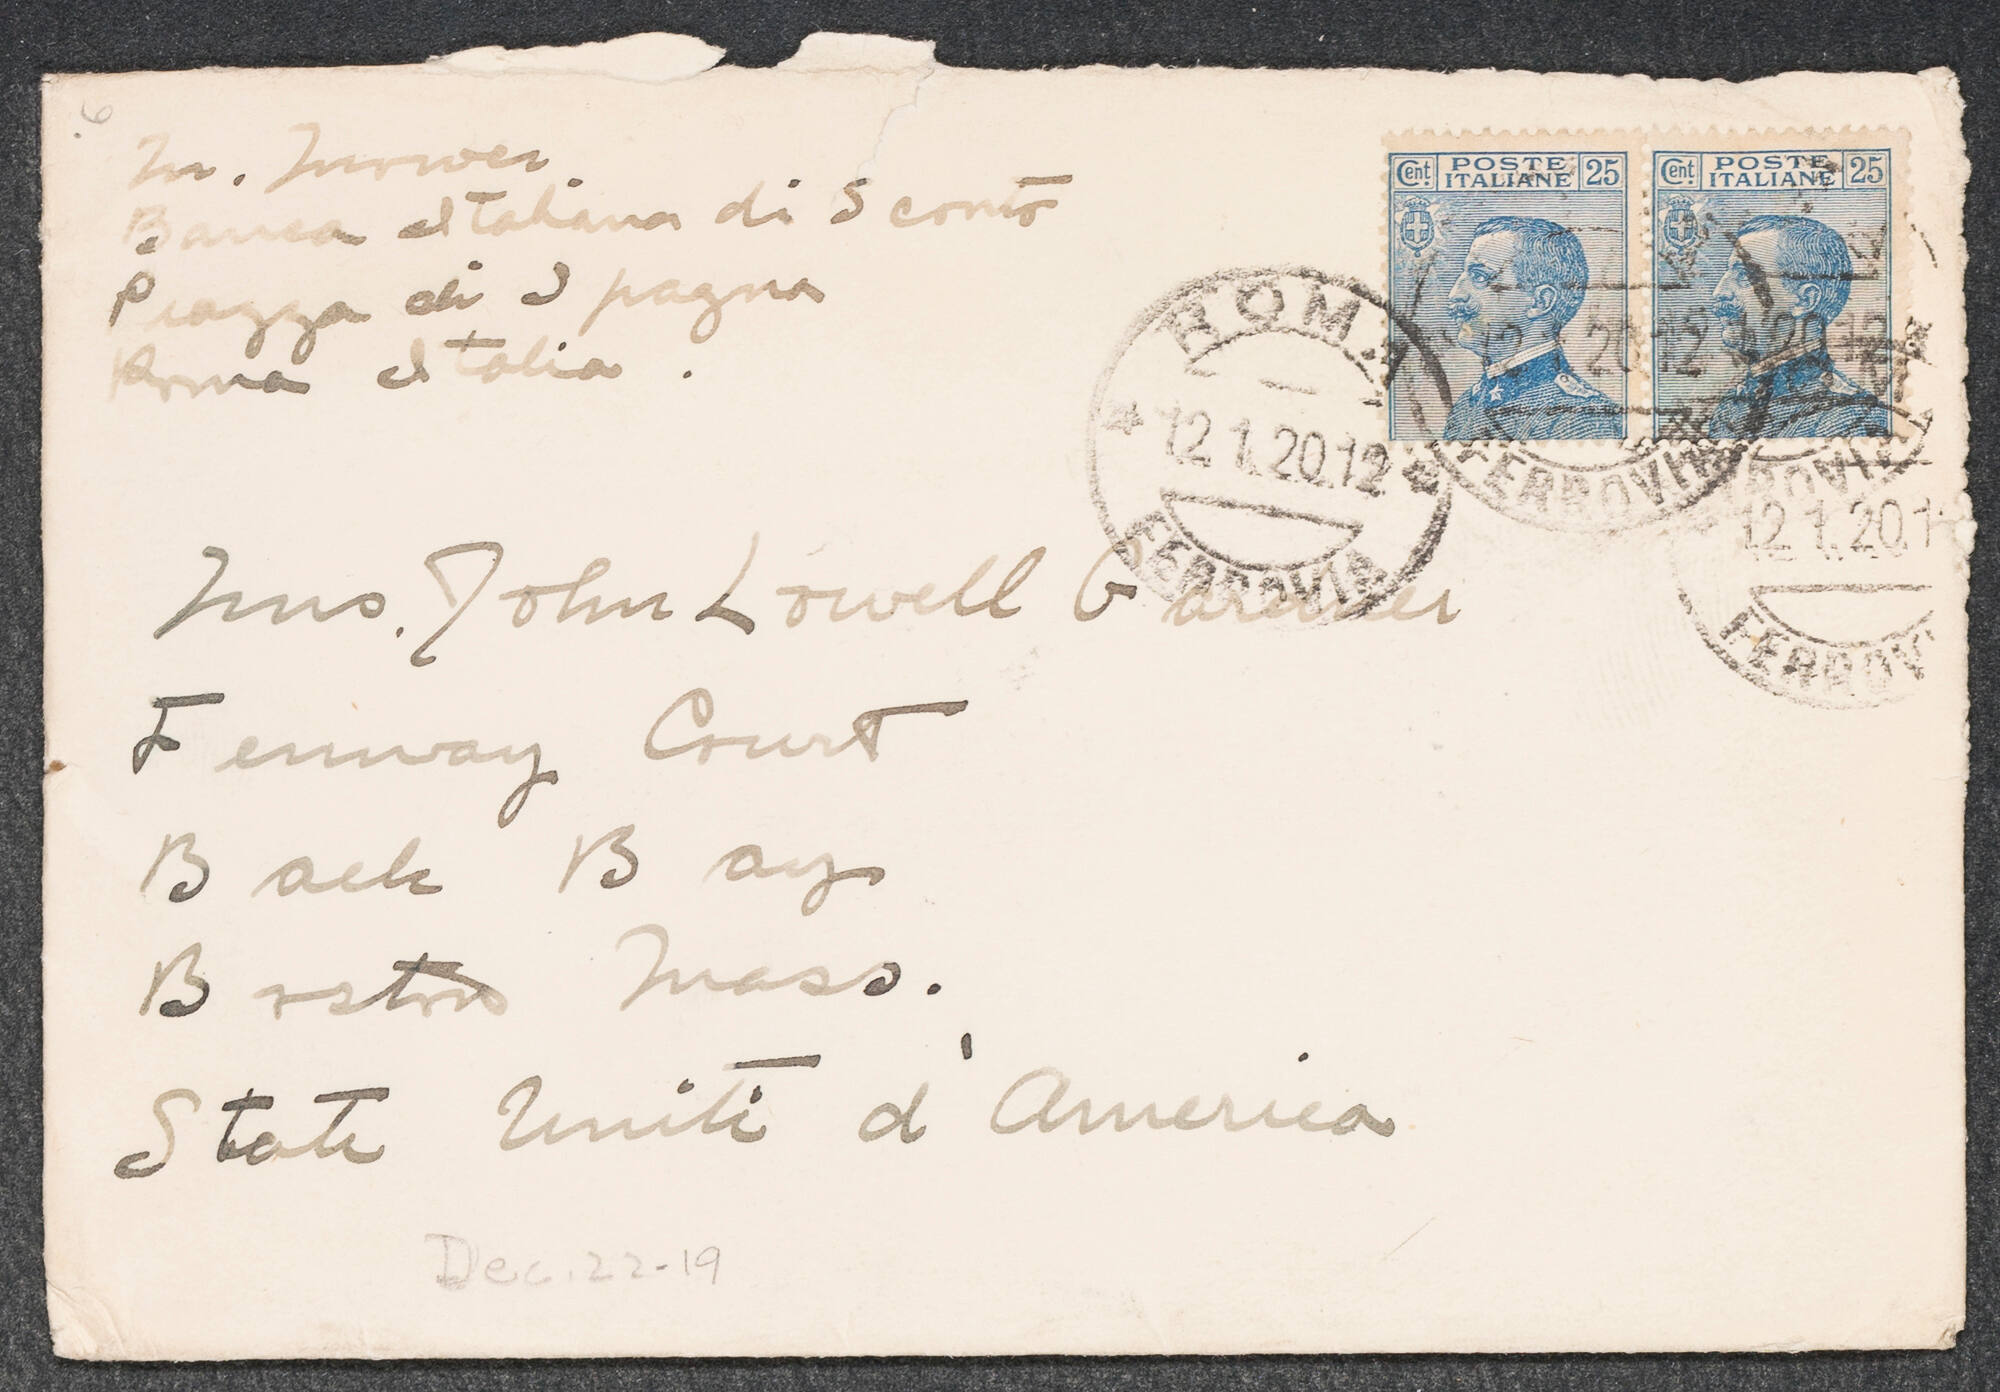 M. Mower
Banca Italiana di Sconto
Piazza di Spagna
Roma Italia.
Cent. POSTE ITALIANE 25
Cent. POSTE ITALIANE 25
ROMA
12 1.20.12
FERROVIA
12 1.20.12
FERROVIA
12 1.20.12
12 1.20.1
FERROV
Mrs. John Lowell Gardner
Fenway Court
Back Bay
Boston Mass.
Stati Uniti d'America
Dec. 22-19